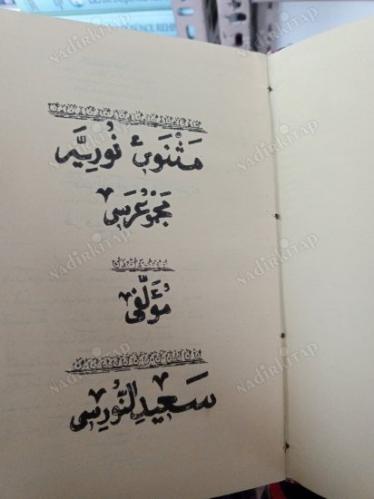 مَثْنَوِئِ نُورِيَّه
مجموعه‌سى
مُؤَلِّفى
سَعِيدِ النُّورِسِى
nadirkitap